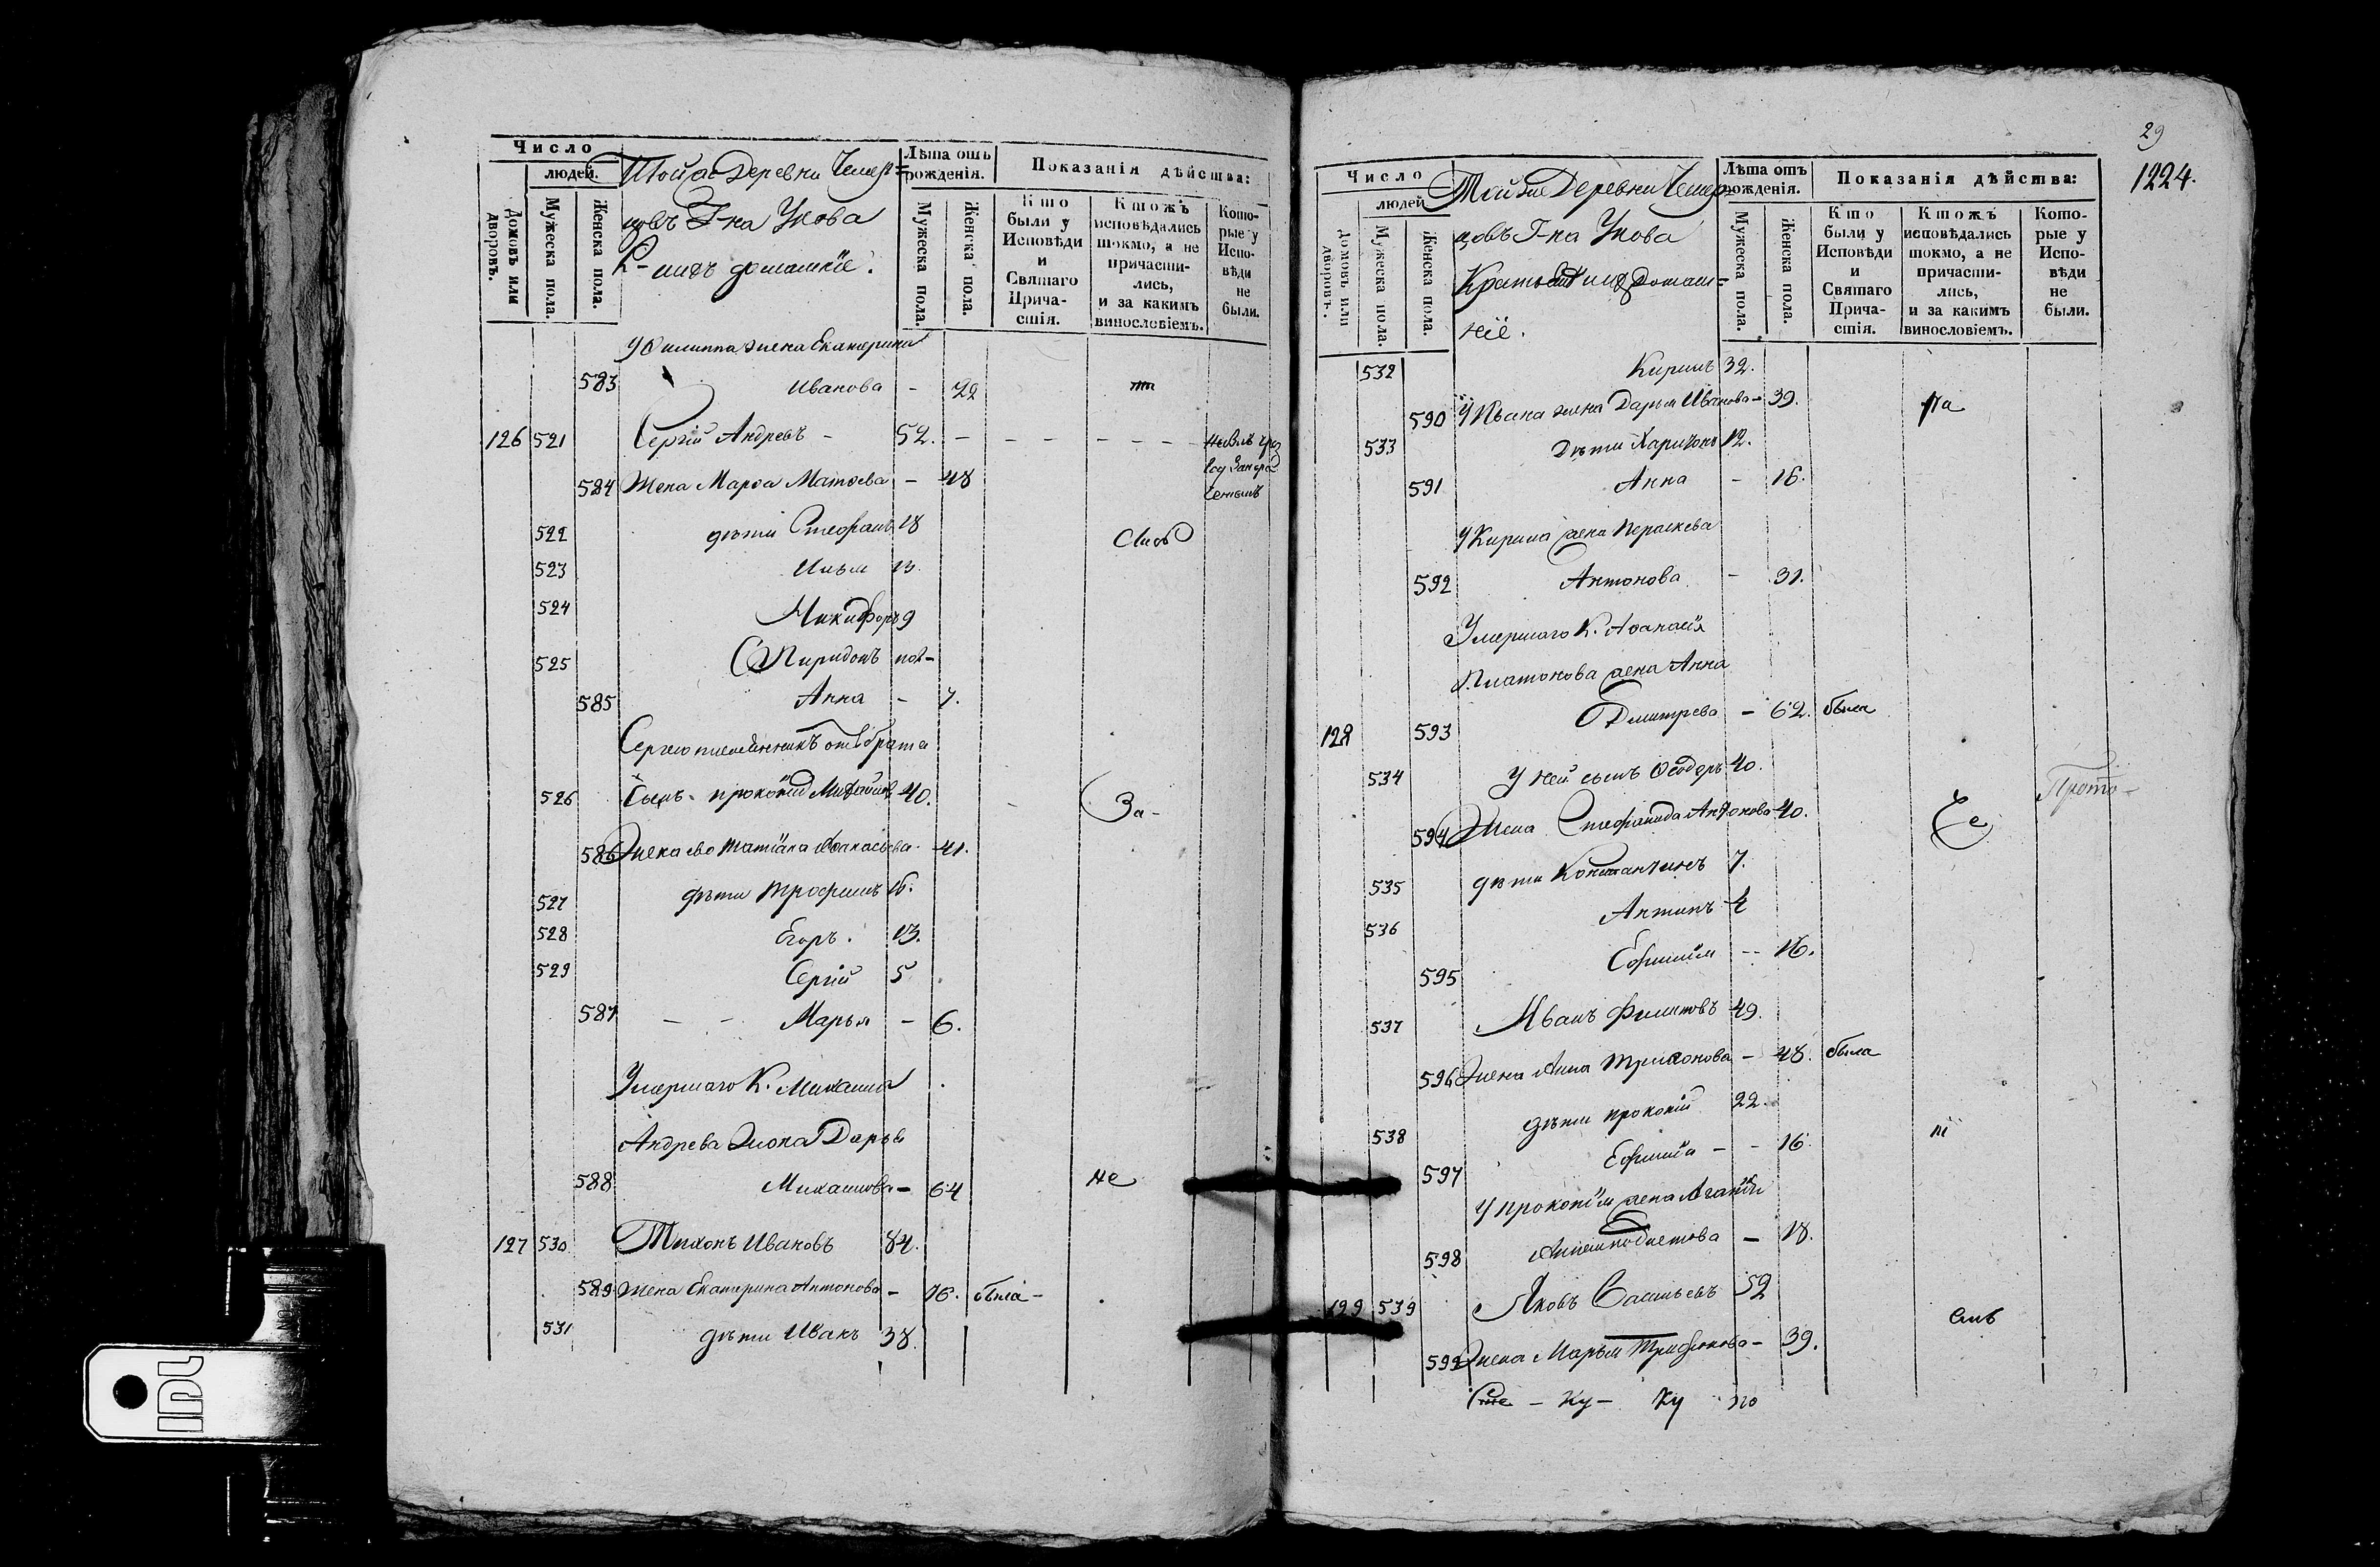 Число
людей.
Домовъ или дворовъ.
Мужеска пола.
Женска пола.
Тойже Деревни Чемер=
цовъ Г-на Укова
К- нихъ домашніе.
Лѣта отъ рожденія.
Мужеска пола.
Женска пола.
Показанія дѣйства:
Кто были у Исповѣди и Святаго Причастія.
Ктожъ исповѣдались токмо, а не причастились, и за какимъ винословіемъ.
Которые у Исповѣди не были.
У Филиппа жена Екатерина
583 Иванова - 22
126 521 Сергій Андревъ - 52. - - - - - -
584 Жена Марѳа Матѳева - 48
522 дѣти Стефанъ 18
523 Илья 13.
524 Никифоръ 9
525 Спиридонъ пол-
585 Анна - 7.
Сергею племянникъ отъ брата
526 сынъ прокопій Михайловъ 40. За-
586 Жена ево татіана Афанасьева 41.
527 дѣти трофимъ 16.
528 Егоръ. 13.
529 Сергій 5
587 - - Марья - 6.
Умершаго К. Михаила
Андрева жена Дарья
588 Михаилова - 64 не
127 530 Тихонъ Ивановъ 84.
589 Жена Екатерина Антонова - 76. была -
531 дѣти Иванъ 38.
29
1224.
Число
людей
Домовъ или дворовъ.
Мужеска пола.
Женска пола.
Тойже Деревни Чемер-
цовъ Г-на Укова
Домаш=
ніе.
Лѣта отъ рожденія.
Мужеска пола.
Женска пола.
Показанія дѣйства:
Кто были у Исповѣди и Святаго Причастія.
Ктожъ исповѣдались токмо, а не причастились, и за какимъ винословіемъ.
Которые у Исповѣди не были.
532 Кирилъ 32.
590 У Ивана жена Дарья Иванова - 39. па
533 Дѣти Харитонъ 12.
591 Анна - 16.
У Кирила жена Параскева
592 Антонова - 31.
Умершаго К. Афанасія
Платонова жена Анна
128 593 Дмитрева - 62. была
534 У ней сынъ Ѳеодоръ 40.
594 Жена Стефанида Антонова 40.
535 дѣти Константинъ 7.
536 Антипъ 4
595 Ефимія - 16.
537 Иванъ Филиповъ 49.
596 Жена Анна трифонова - 48. была
538 дѣти прокопій 22.
597 Ефимія - - 16.
У прокопія жена Агафія
598 Анемподистова - 18.
129 539 Яковъ Васильевъ 52
599 Жена Марья Трифонова - 39.